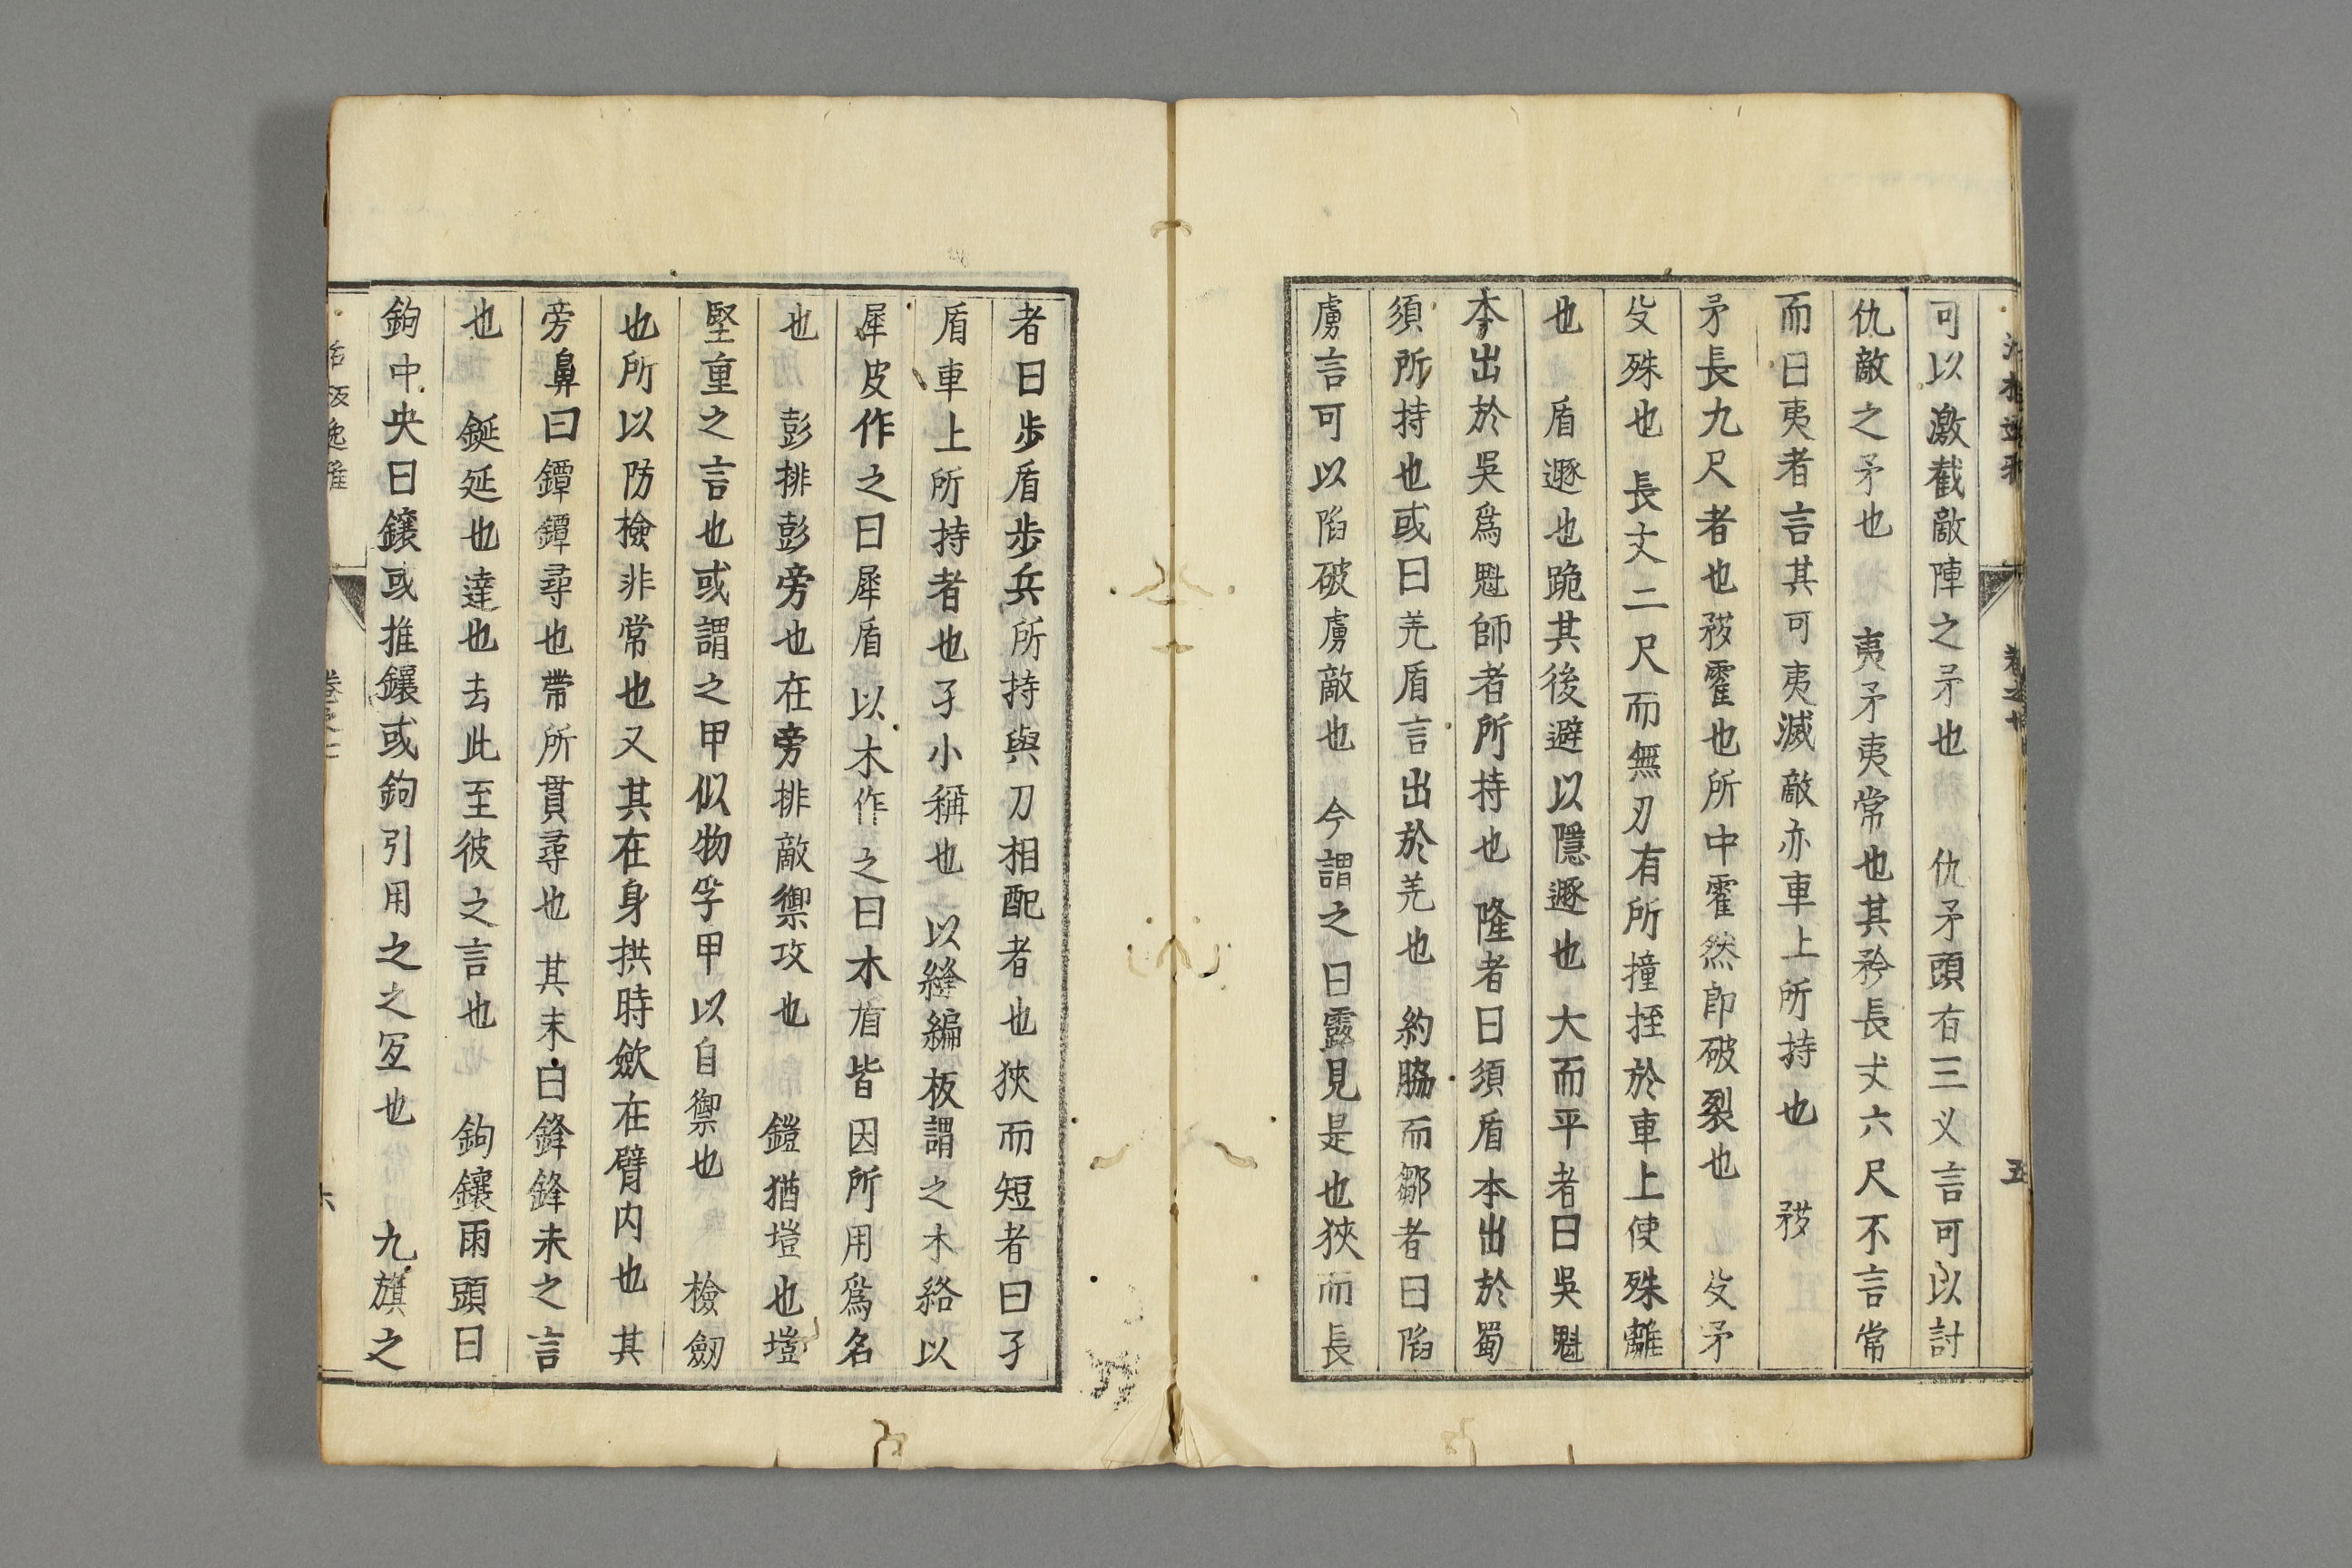 可以激截敵陣之矛也　仇矛頭有三义言可以討
仇敵之矛也　夷矛夷常也其矜長丈六尺不言常
而曰夷者言其可夷滅敵亦車上所持也　䂍
矛長九尺者也䂍霍也所中霍然即破裂也　殳矛
殳殊也　長丈二尺而無刃有所撞挃於車上使殊離
也　盾遯也跪其後避以隱遯也　大而平者曰吳魁
本出於吳爲魁師者所持也　隆者曰須盾本出於蜀
須所持也或曰羌盾言出於羌也　約脇而鄒者曰陷
虜言可以陷破虜敵也　今謂之曰露見是也狹而長
者曰步盾步兵所持與刀相配者也狹而短者曰孑
盾車上所持者也孑小稱也　以縫編板謂之木絡以
犀皮作之曰犀盾　以木作之曰木盾皆因所用爲名
也　彭排彭旁也在旁排敵禦攻也　鎧猶塏也塏
堅重之言也或謂之甲似物孚甲以自禦也　檢劒
也所以防檢非常也又其在身拱時斂在臂内也　其
旁鼻曰鐔鐔尋也帶所貫尋也　其末曰鋒鋒末之言
也　鋋延也達也去此至彼之言也　鉤鑲兩頭曰
鉤中央曰鑲或推鑲或鉤引用之之宐也　九旗之
卷之七
六
五